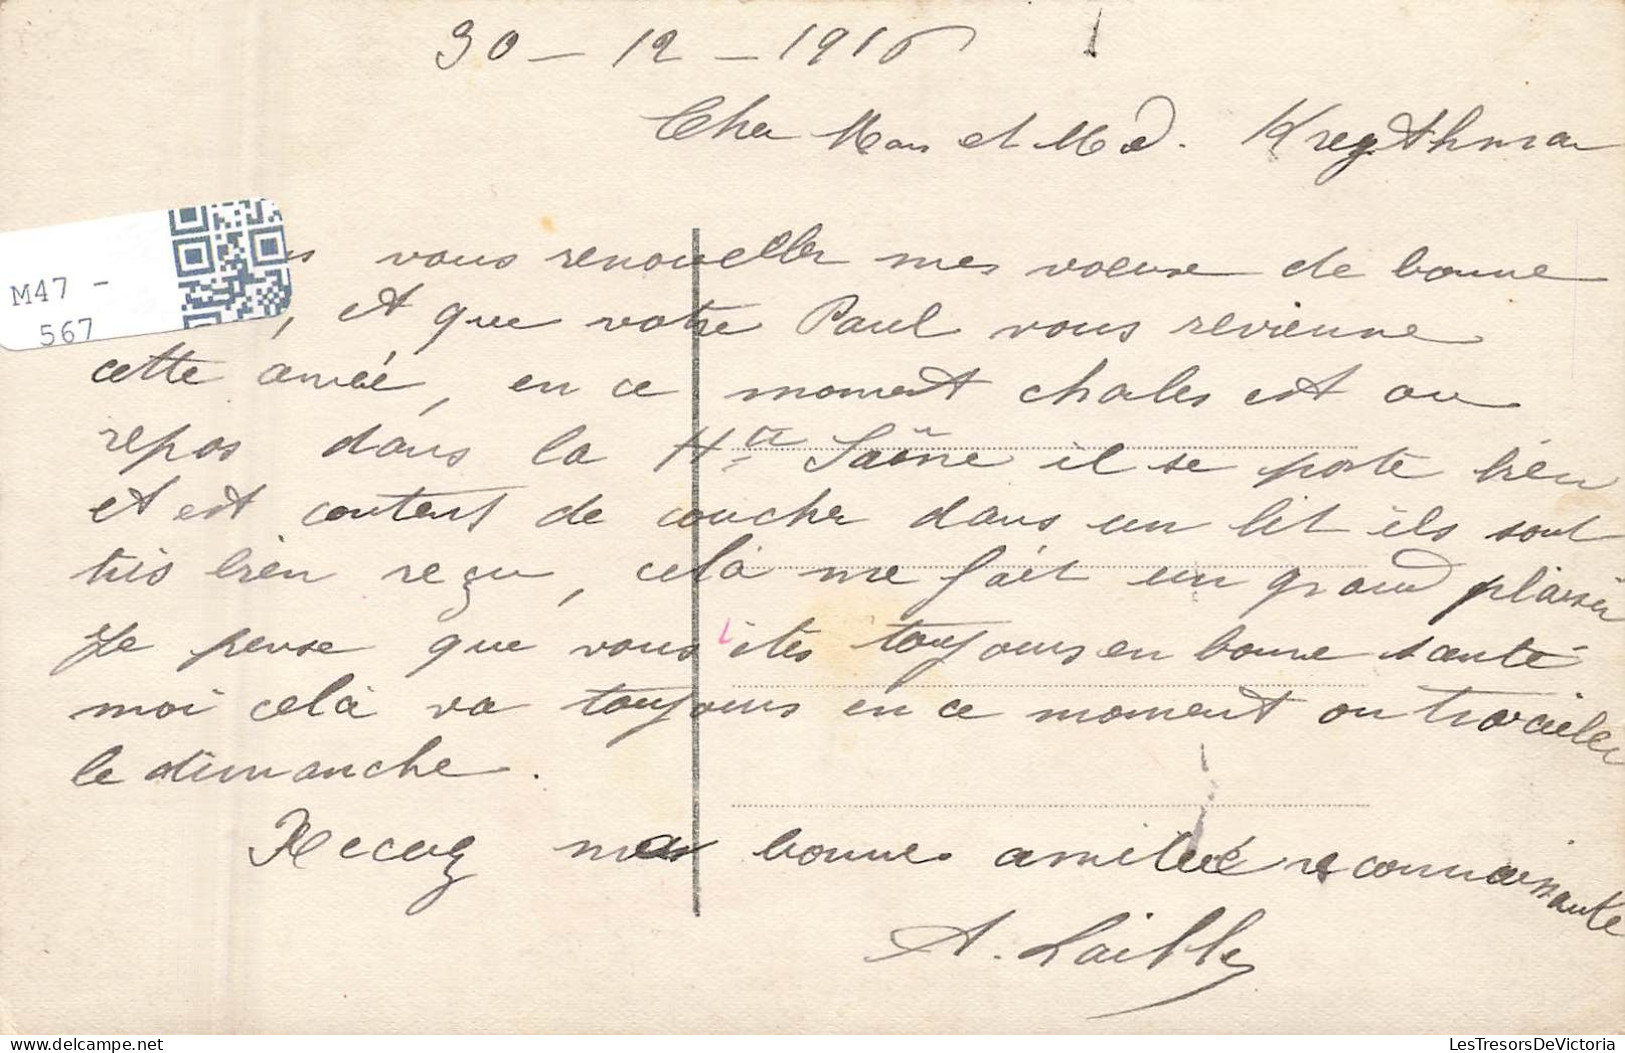 30 - 12 - 1916
Cher Mon et Md. Kregthman
vous renouveller mes voeuse de bonne
M47 -
567
, et que votre Paul vous revienne
cette année, en ce moment chales est au
repos dans la Hte Saône il se porte bien
et est contens de coucher dans un lit ils sont
très bien reçu, celà me fait un grand plaisir
Je pense que vous êtes toujours en bonne santé
moi celà va toujours en ce moment on travailler
le dimanche.
Recevez mes bonnes amitiée reconnaissante
A. Lailly
LesTresorsDeVictoria
delcampe.net